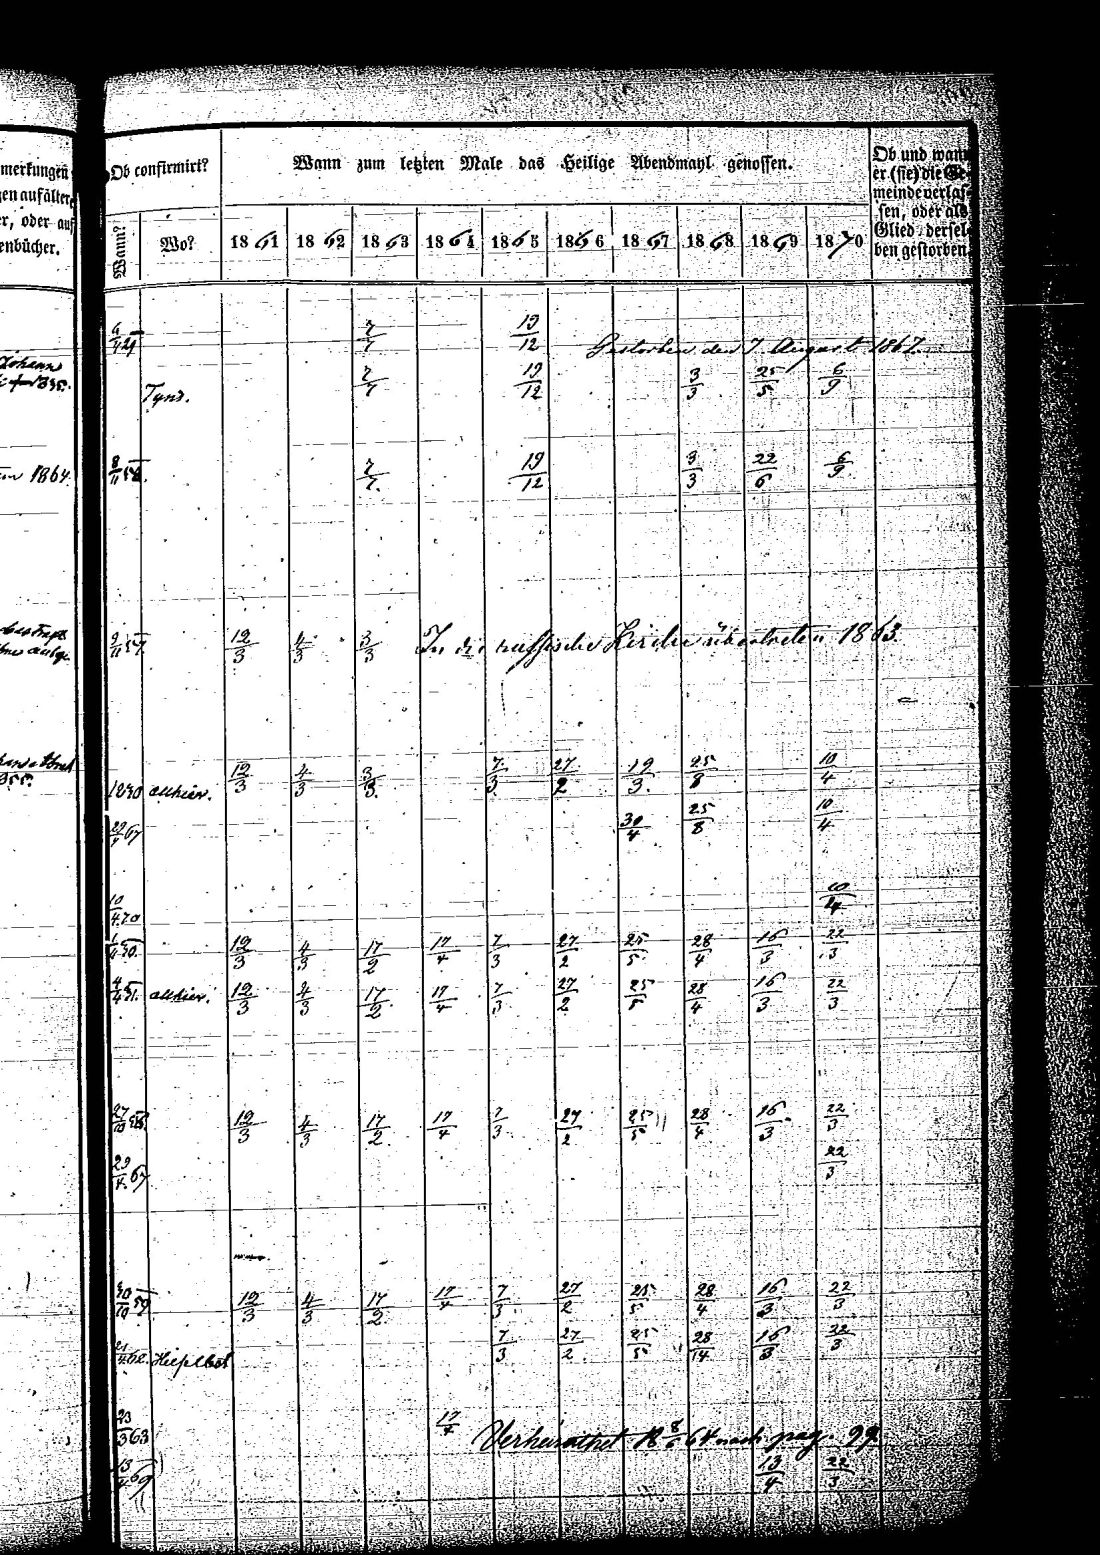 merkungen
gen aufälter
er, oder auf
enbücher.
Ob confirmirt?
Wann zum letzten Male das Heilige Abendmahl genossen.
Ob und wann
er (sie) die Ge-
meinde verlas-
sen, oder als
Glied dersel-
ben gestorben.
Wann?
Wo?
1861 1862 1863 1864 1865 1866 1867 1868 1869 1870
7/7 19/12 Gestorben den 7 August 1867.
Johann
Tynd. 7/7 19/12 3/3 25/5 6/9
1864. 7/7 19/12 3/3 22/6 6/9
12/3 4/3 3/3 In die russische Kirche übertreten 1863.
1830 allhier. 12/3 4/3 3/3 7/3 27/2 19/3 25/8 10/4
67 30/4 25/8 10/4
10/4 70 10/4
12/3 4/3 17/2 17/4 7/3 27/2 25/5 28/4 16/3 22/3
allhier. 12/3 4/3 17/2 17/4 7/3 27/2 25/5 28/4 16/3 22/3
12/3 4/3 17/2 17/4 7/3 27/2 25/5 28/4 16/3 22/3
67 22/3
30/10 59 12/3 4/3 17/2 17/4 7/3 27/2 25/5 28/4 16/3 22/3
7/3 27/2 25/5 28/4 16/3 22/3
23/3 63 17/4 Verheirathet 18 8/6 64 nach pag. 99.
69 13/4 22/3